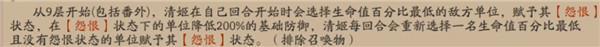 从9层开始(包括番外)，清姬在自己回合开始时会选择生命值百分比最低的敌方单位，赋予其【怨恨】
状态，在【怨恨】状态下的单位降低200%的基础防御，清姬每回合会重新选择一名生命值百分比最低
且没有怨恨状态的单位赋予其【怨恨】状态。（排除召唤物）